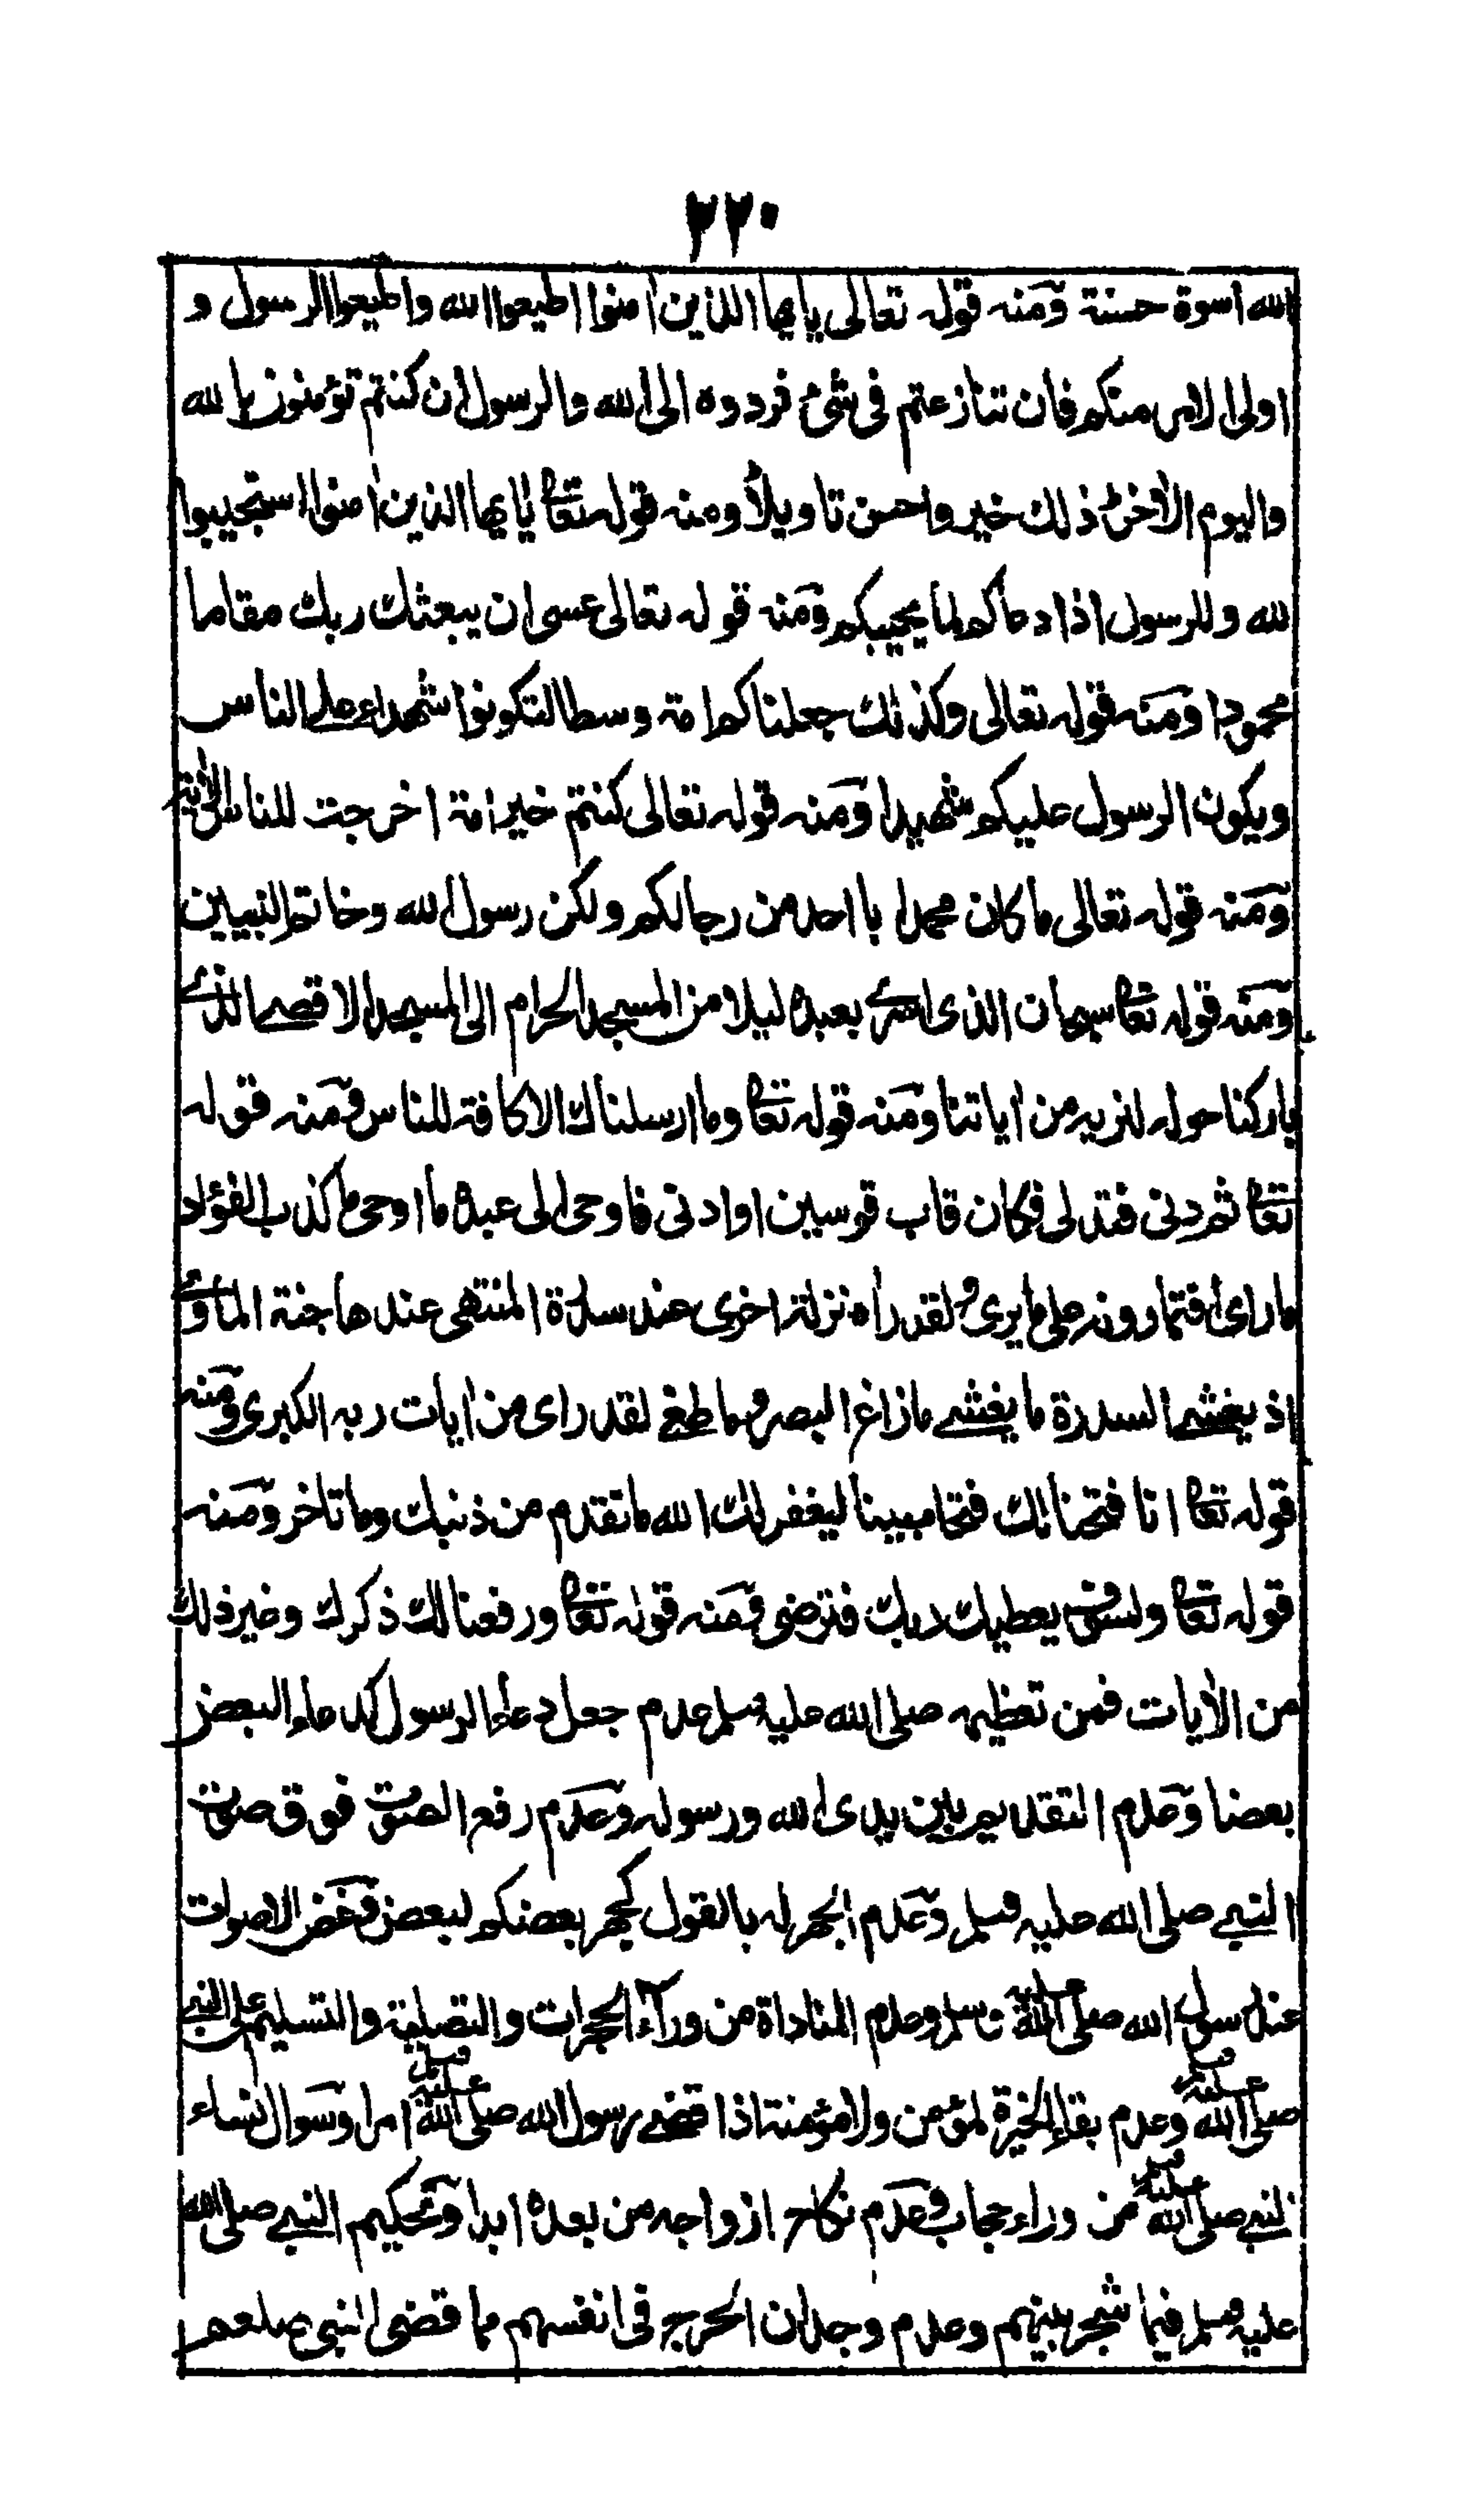 ۲۲۰
الله اسوة حسنة ومنه قوله تعالى يايها الذين امنوا اطيعوا الله واطيعوا الرسول و
اولى الامر منكم فان تنازعتم فى شئ فردوه الى الله والرسول ان كنتم تؤمنون بالله
واليوم الاخر ذلك خير واحسن تاويلا ومنه قوله تعا يايها الذين امنوا استجيبوا
لله وللرسول اذا دعاكم لما يحييكم ومنه قوله تعالى عسى ان يبعثك ربك مقاما
محمودا ومنه قوله تعالى وكذلك جعلناكم امة وسطا لتكونوا شهداء على الناس
ويكون الرسول عليكم شهيدا ومنه قوله تعالى كنتم خير امة اخرجت للناس الاية
ومنه قوله تعالى ما كان محمد ابا احد من رجالكم ولكن رسول الله وخاتم النبيين
ومنه قوله تعا سبحان الذى اسرى بعبده ليلا من المسجد الحرام الى المسجد الاقصى الذى
باركنا حوله لنريه من اياتنا ومنه قوله تعا وما ارسلناك الا كافة للناس ومنه قوله
تعا ثم دنى فتدلى فكان قاب قوسين او ادنى فاوحى الى عبده ما اوحى ما كذب الفؤاد
ما راى افتمارونه على ما يرى ولقد راه نزلة اخرى عند سدرة المنتهى عندها جنة الماوى
اذ يغشى السدرة ما يغشى ما زاغ البصر وما طغى لقد راى من ايات ربه الكبرى ومنه
قوله تعا انا فتحنا لك فتحا مبينا ليغفر لك الله ما تقدم من ذنبك وما تاخر ومنه
قوله تعا ولسوف يعطيك ربك فترضى ومنه قوله تعا ورفعنا لك ذكرك وغير ذلك
من الايات فمن تعظيمه صلى الله عليه وسلم عدم جعل دعاء الرسول كدعاء البعض
بعضا وعدم التقديم بين يدى الله ورسوله وعدم رفع الصوت فوق صوت
النبى صلى الله عليه وسلم وعدم الجهر له بالقول كجهر بعضكم لبعض وغض الاصوات
عند رسول الله صلى الله عليه وسلم وعدم المناداة من وراء الحجرات والتصلية والتسليم على النبى
صلى الله عليه وسلم وعدم بقاء الخيرة لمؤمن ولا مؤمنة اذا قضى رسول الله صلى الله عليه وسلم امرا وسوال نساء
النبى صلى الله عليه وسلم من وراء حجاب وعدم نكاح ازواجه من بعده ابدا وتحكيم النبى صلى الله
عليه وسلم فيما شجر بينهم وعدم وجدان الحرج فى انفسهم مما قضى النبى صلعم